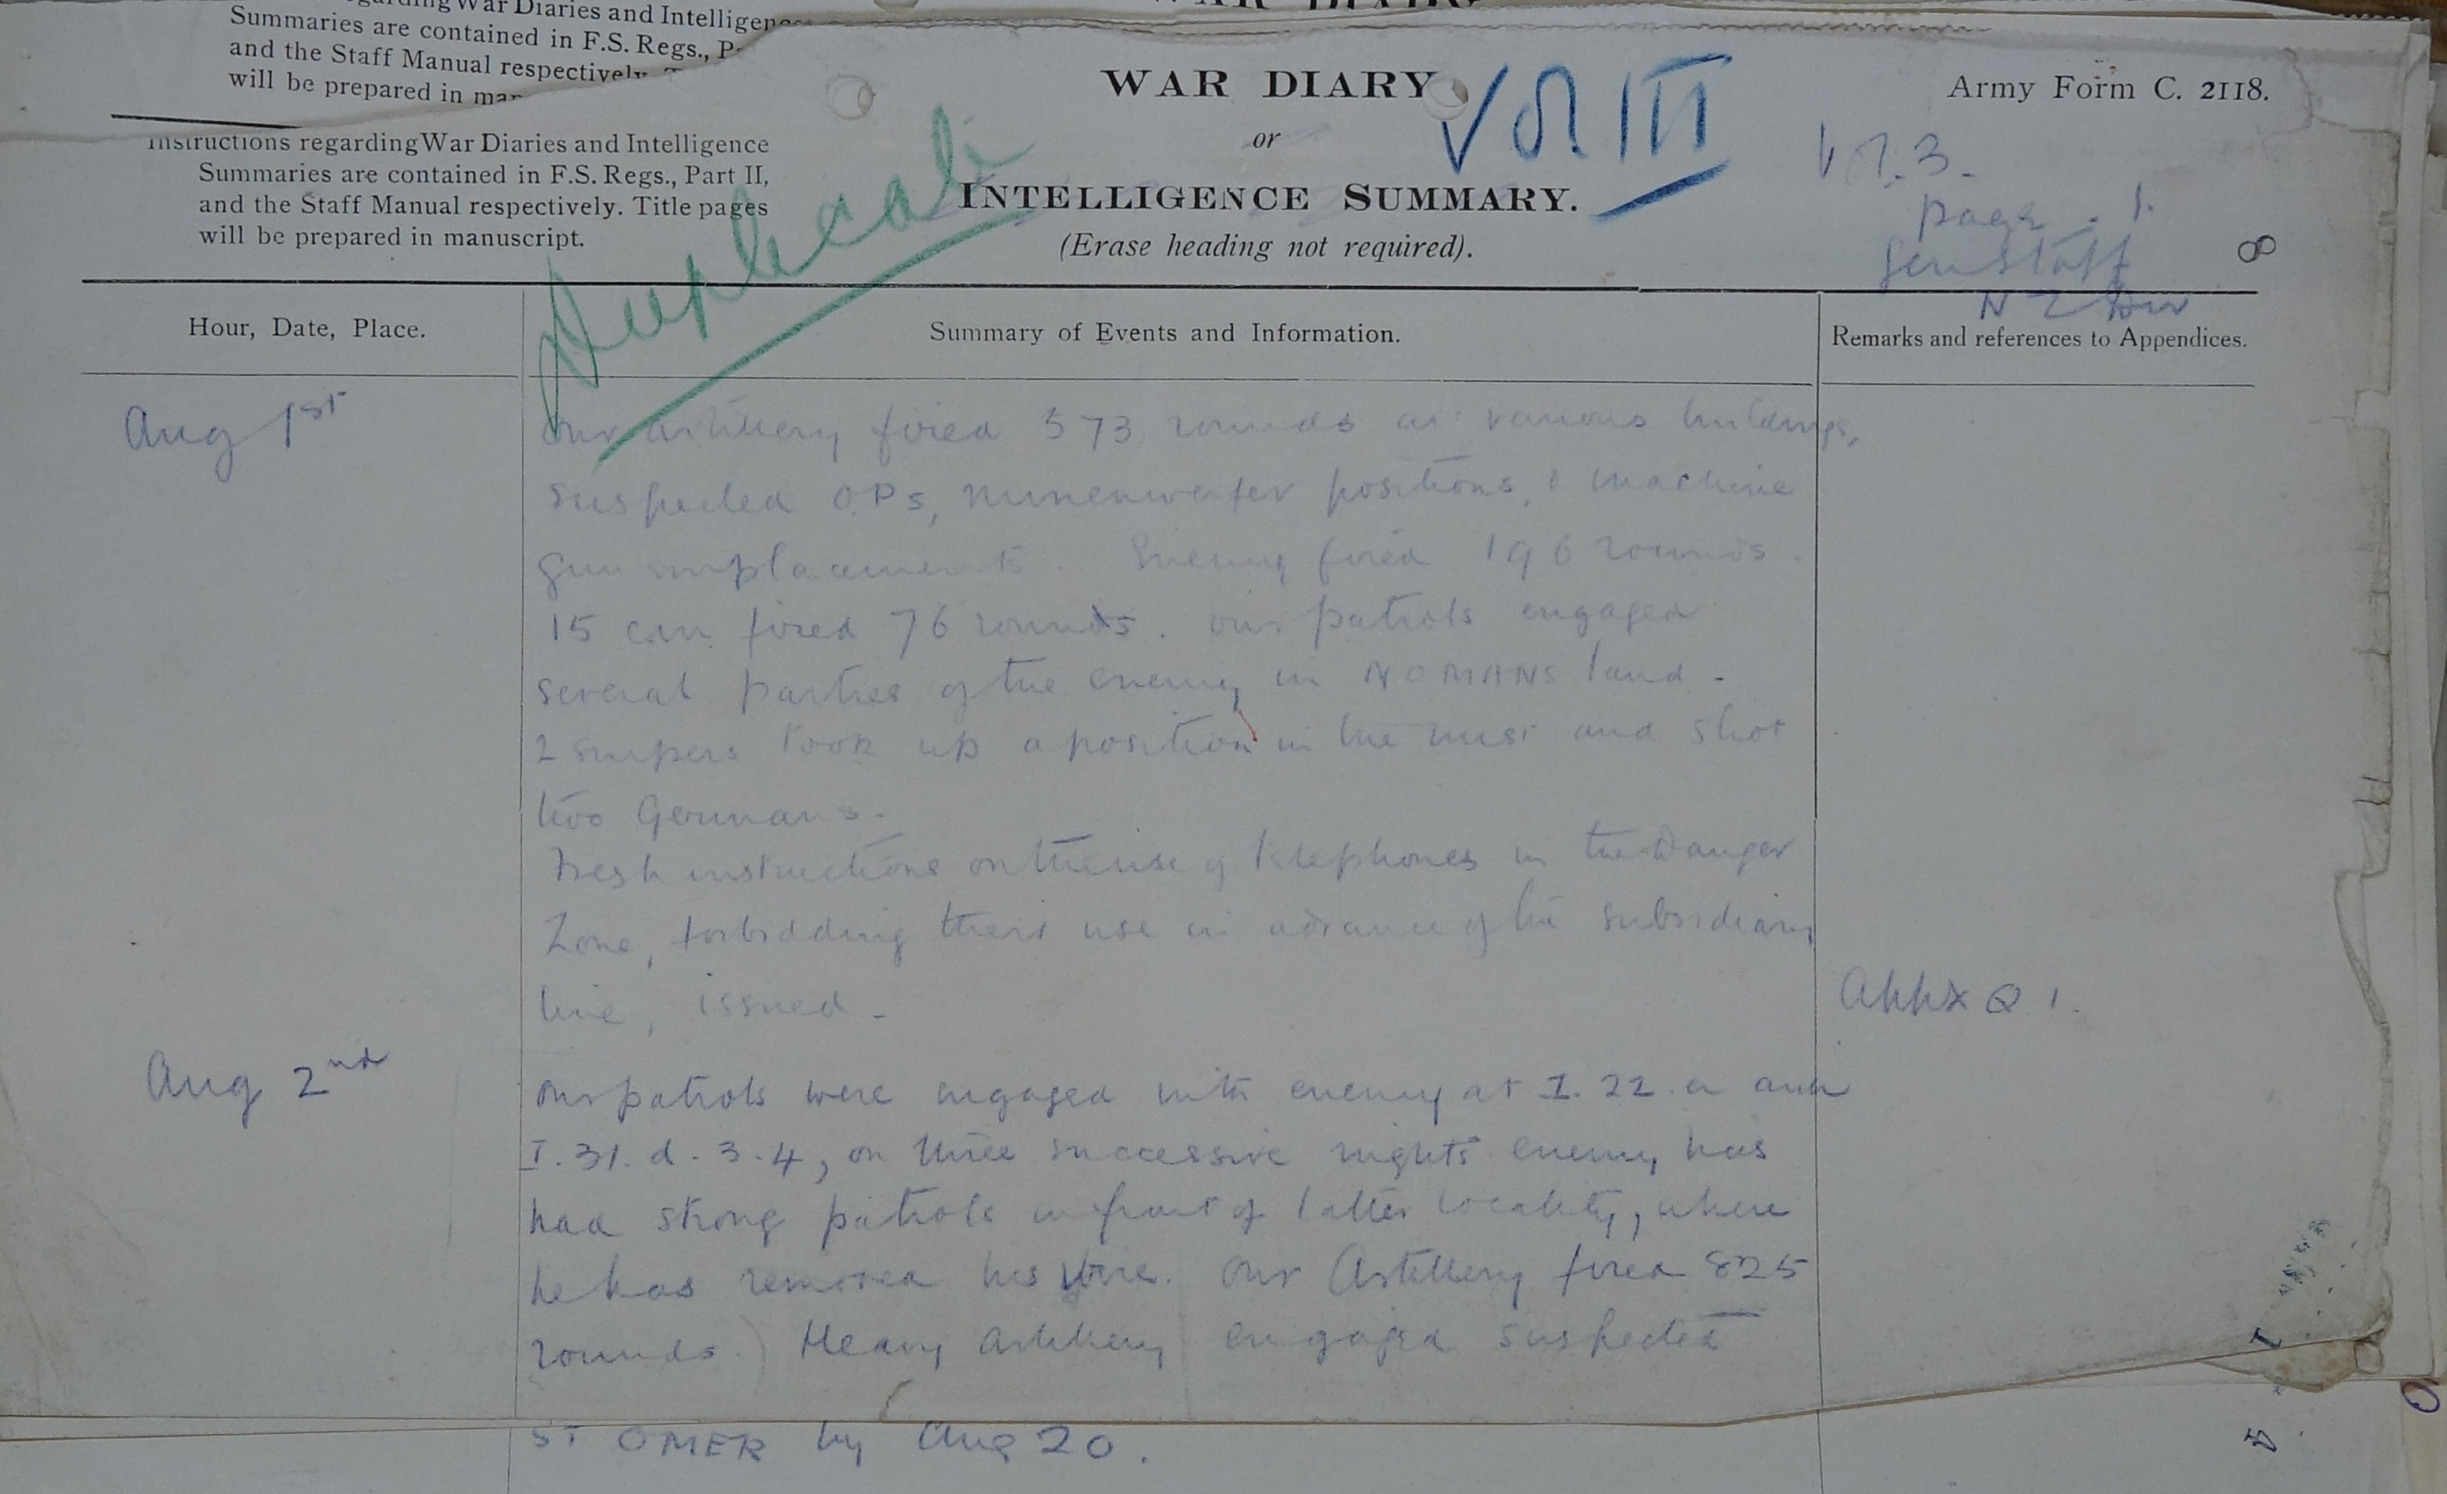 WAR DIARY
regarding War Diaries and Intelligence
Summaries are contained in F.S. Regs., P
and the Staff Manual respectively. T
will be prepared in man
WAR DIARY
or
INTELLIGENCE SUMMARY.
(Erase heading not required).
Vol III
Army Form C. 2118.
Instructions regarding War Diaries and Intelligence
Summaries are contained in F.S. Regs., Part II,
and the Staff Manual respectively. Title pages
will be prepared in manuscript.
Duplicate
Vol. 3.
page. 1.
Gen Staff
N Z Div
8
Hour, Date, Place.
Summary of Events and Information.
Remarks and references to Appendices.
Aug 1st
Our artillery fired 573 rounds at various buildings,
suspected OPs, minenwerfer positions, & machine
gun emplacements. Enemy fired 196 rounds.
15 cm fired 76 rounds. Our patrols engaged
several parties of the enemy in NOMANS land -
2 snipers took up a position in the mist and shot
two Germans.
Fresh instructions on the use of telephones in the Danger
Zone, forbidding their use in advance of the subsidiary
line, issued -
Appx Q 1.
Aug 2nd
Our patrols were engaged with enemy at I. 22. a and
I. 31. d. 3.4, on three successive nights enemy has
had strong patrols in front of latter locality, where
he has removed his wire. Our Artillery fired 825
rounds. Heavy Artillery engaged suspected
ST OMER by Aug 20.